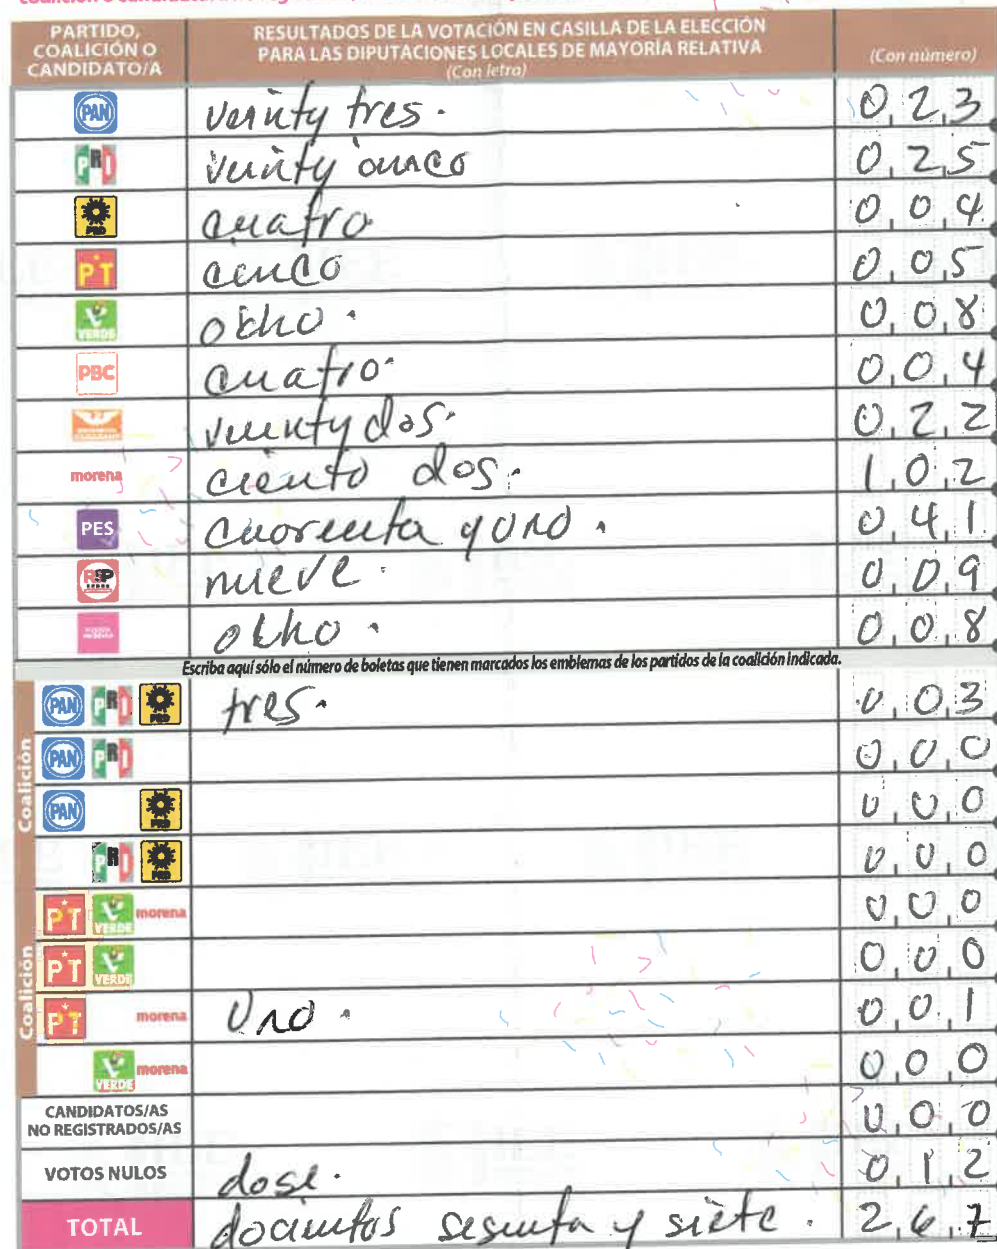 PARTIDO, COALICIÓN O CANDIDATO/A RESULTADOS DE LA VOTACIÓN EN CASILLA DE LA ELECCIÓN PARA LAS DIPUTACIONES LOCALES DE MAYORÍA RELATIVA (Con letra) (Con número)
PAN veinty tres. 023
PRI veinty cinco 025
PRD cuatro 004
PT cinco 005
VERDE ocho. 008
PBC cuatro. 004
veinty dos. 022
morena ciento dos. 102
PES cuorenta y uno. 041
RSP nueve. 009
ocho. 008
Escriba aquí sólo el número de boletas que tienen marcados los emblemas de los partidos de la coalición indicada.
Coalición
PAN PRI PRD tres. 003
PAN PRI 000
PAN PRD 000
PRI PRD 000
Coalición
PT VERDE morena 000
PT VERDE 000
PT morena Uno. 001
VERDE morena 000
CANDIDATOS/AS NO REGISTRADOS/AS 000
VOTOS NULOS dose. 012
TOTAL docientos sesenta y siete. 267